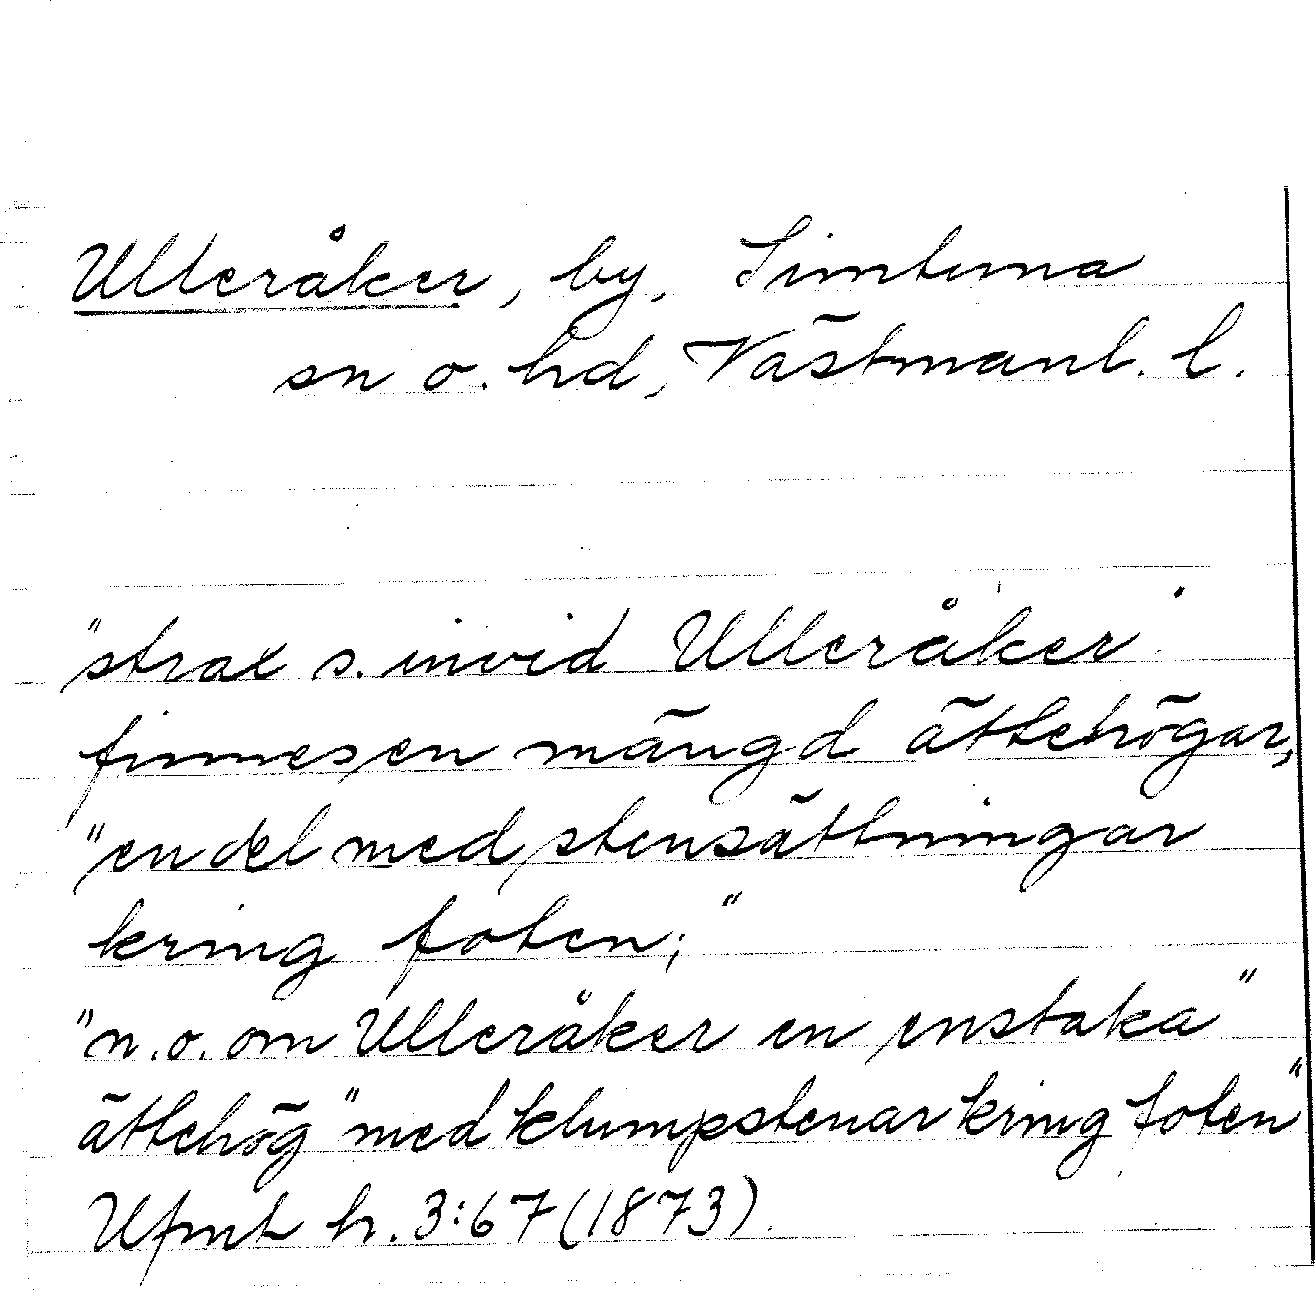 Ulleråker, by, Simtuna
sn o. hd, Västmanl. l.
"strax s. invid Ulleråker"
finnes en mängd ättehögar,
"en del med stensättningar
kring foten;"
"n.o. om Ulleråker en enstaka"
ättehög "med klumpstenar kring foten"
Ufmt h. 3:67 (1873).